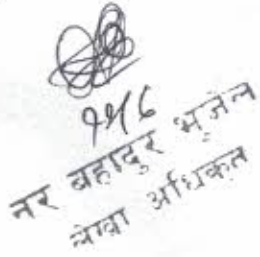 नर बहादुर भुजेल
लेखा अधिकृत